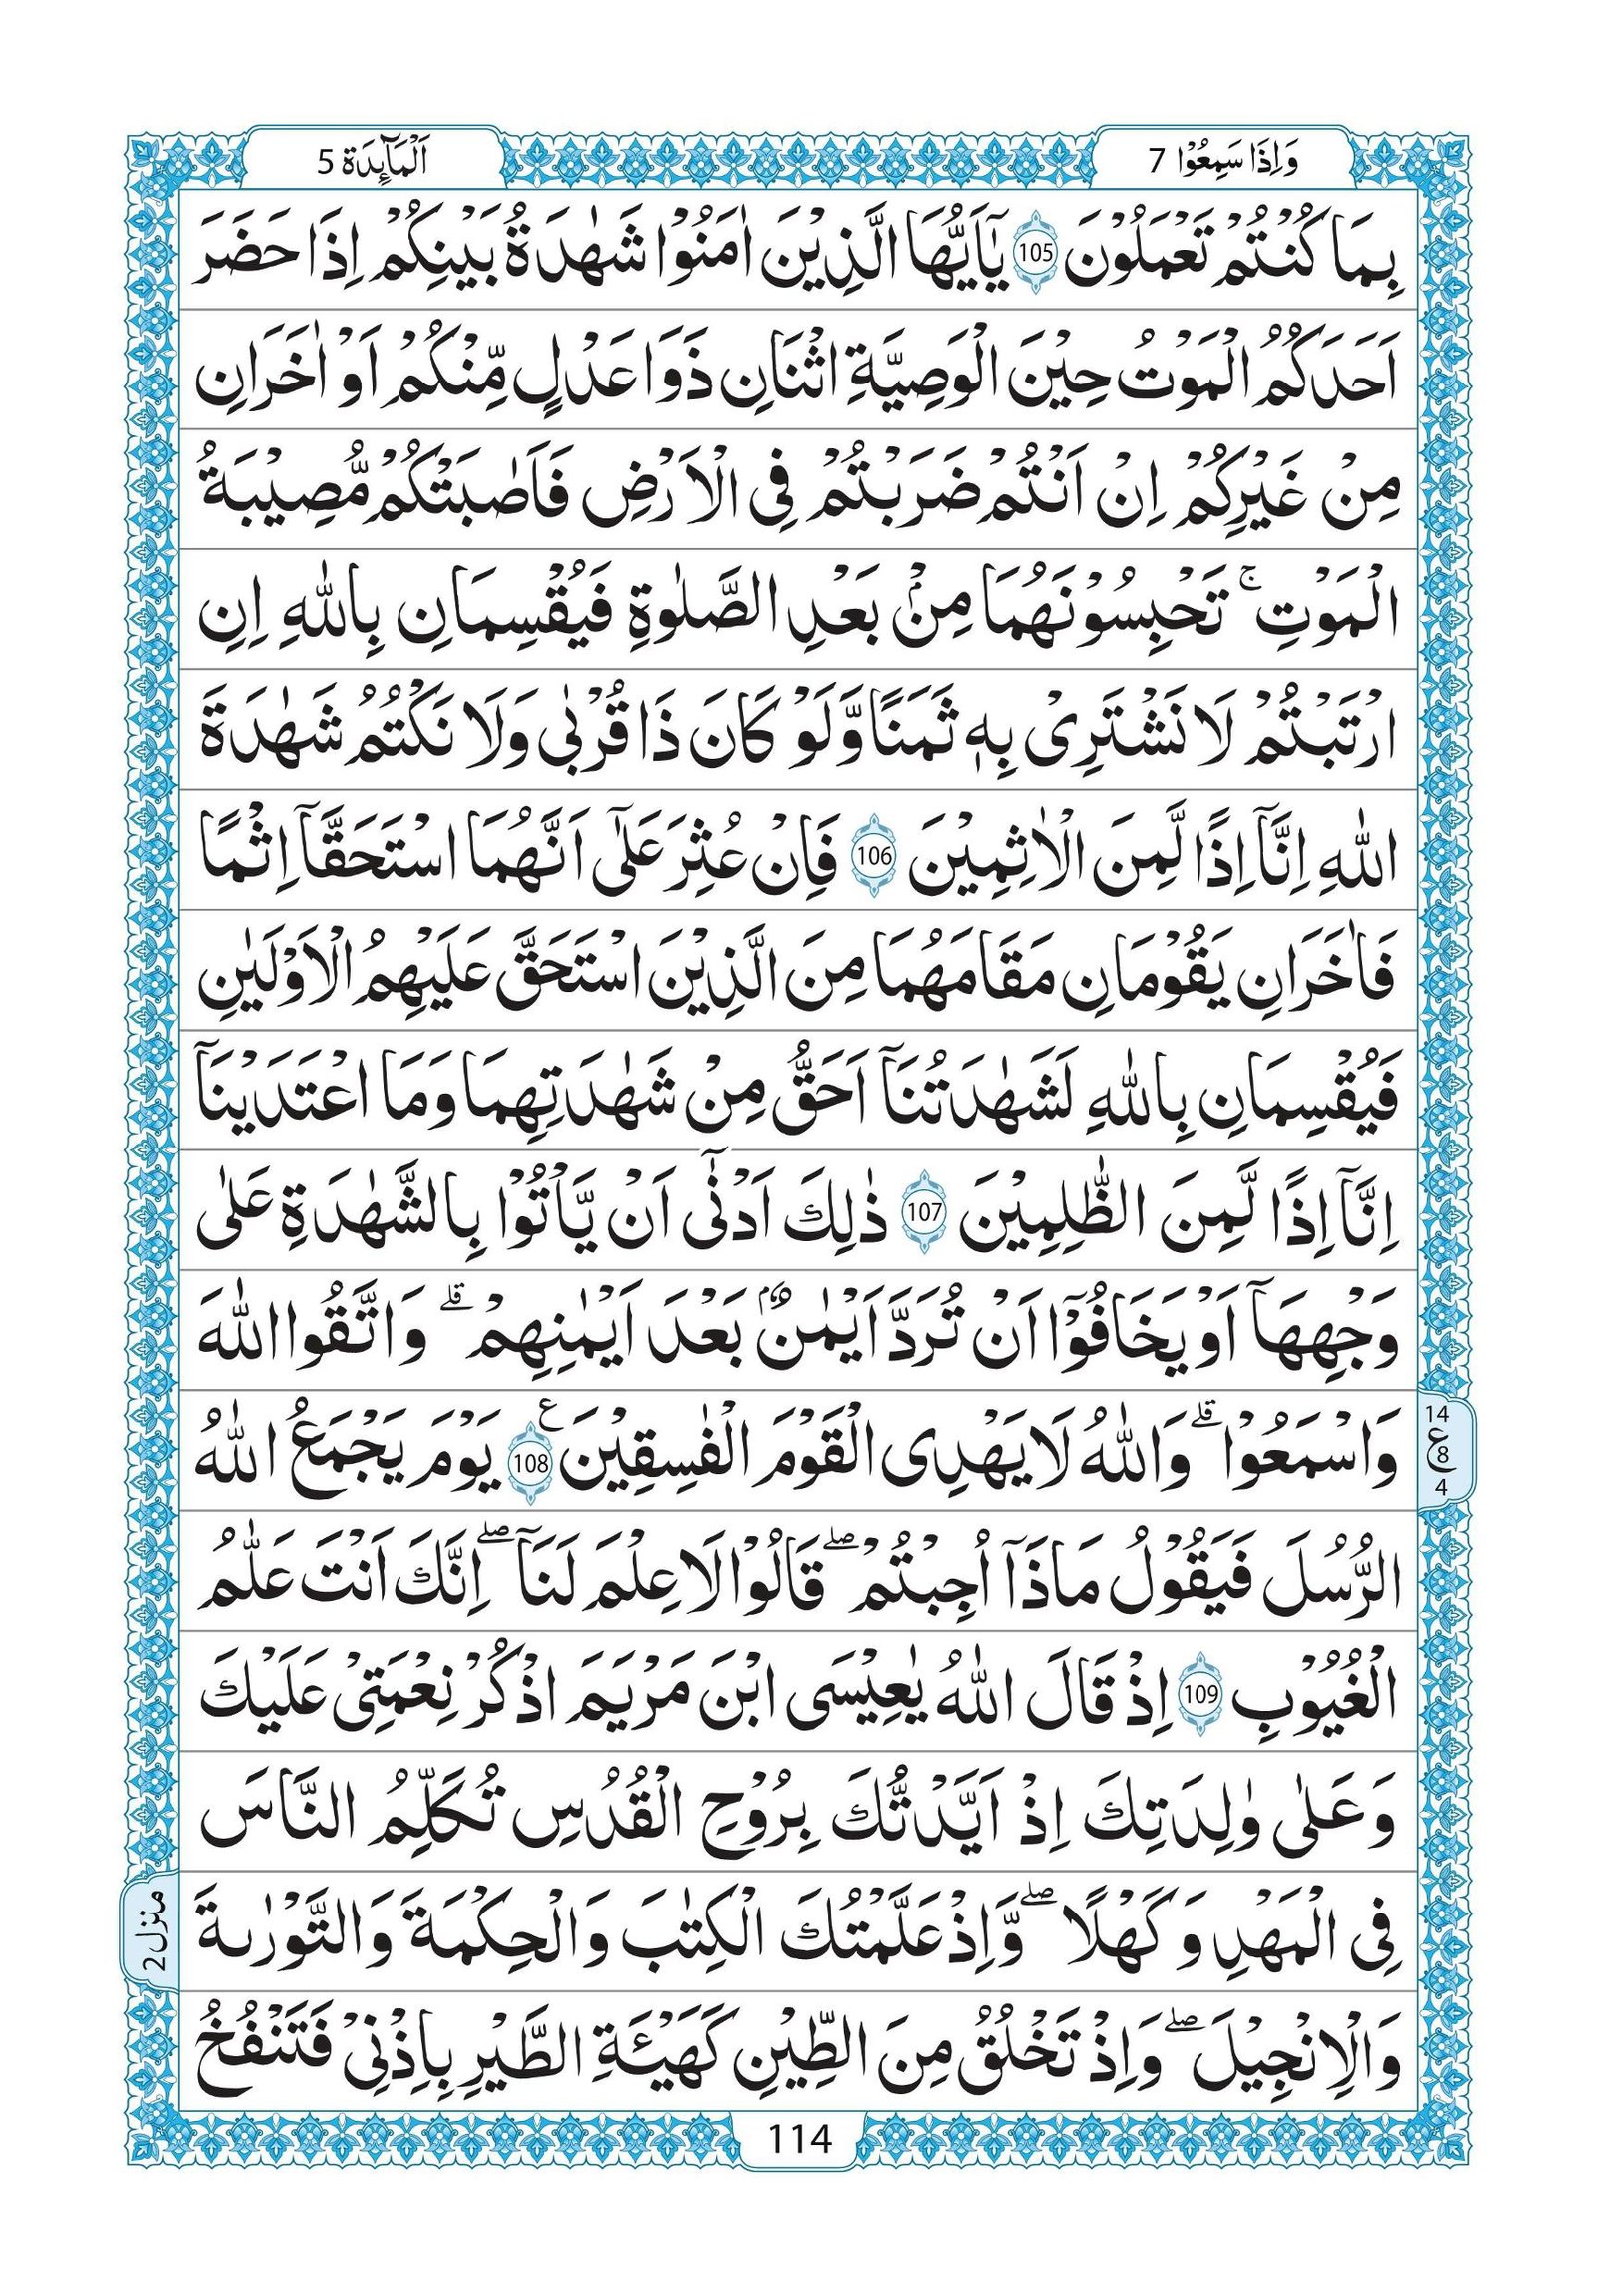 وَاِذَا سَمِعُوْا 7
اَلْمَآئِدَة 5
بِمَا كُنْتُمْ تَعْمَلُوْنَ 105 يٰۤاَيُّهَا الَّذِيْنَ اٰمَنُوْا شَهٰدَةُ بَيْنِكُمْ اِذَا حَضَرَ
اَحَدَكُمُ الْمَوْتُ حِيْنَ الْوَصِيَّةِ اثْنٰنِ ذَوَا عَدْلٍ مِّنْكُمْ اَوْ اٰخَرَانِ
مِنْ غَيْرِكُمْ اِنْ اَنْتُمْ ضَرَبْتُمْ فِى الْاَرْضِ فَاَصٰبَتْكُمْ مُّصِيْبَةُ
الْمَوْتِ ۚ تَحْبِسُوْنَهُمَا مِنْۢ بَعْدِ الصَّلٰوةِ فَيُقْسِمَانِ بِاللّٰهِ اِنِ
ارْتَبْتُمْ لَا نَشْتَرِىْ بِهٖ ثَمَنًا وَّلَوْ كَانَ ذَا قُرْبٰى وَلَا نَكْتُمُ شَهٰدَةَ
اللّٰهِ اِنَّاۤ اِذًا لَّمِنَ الْاٰثِمِيْنَ 106 فَاِنْ عُثِرَ عَلٰٓى اَنَّهُمَا اسْتَحَقَّاۤ اِثْمًا
فَاٰخَرَانِ يَقُوْمَانِ مَقَامَهُمَا مِنَ الَّذِيْنَ اسْتَحَقَّ عَلَيْهِمُ الْاَوْلَيٰنِ
فَيُقْسِمَانِ بِاللّٰهِ لَشَهٰدَتُنَاۤ اَحَقُّ مِنْ شَهٰدَتِهِمَا وَمَا اعْتَدَيْنَاۤ
اِنَّاۤ اِذًا لَّمِنَ الظّٰلِمِيْنَ 107 ذٰلِكَ اَدْنٰٓى اَنْ يَّاْتُوْا بِالشَّهٰدَةِ عَلٰى
وَجْهِهَاۤ اَوْ يَخَافُوْۤا اَنْ تُرَدَّ اَيْمٰنٌۢ بَعْدَ اَيْمٰنِهِمْ ۗ وَاتَّقُوا اللّٰهَ
وَاسْمَعُوْا ۗ وَاللّٰهُ لَا يَهْدِى الْقَوْمَ الْفٰسِقِيْنَ ع 108 يَوْمَ يَجْمَعُ اللّٰهُ
14 ع 8 4
الرُّسُلَ فَيَقُوْلُ مَاذَاۤ اُجِبْتُمْ ۖ قَالُوْا لَا عِلْمَ لَنَاۤ ۖ اِنَّكَ اَنْتَ عَلّٰمُ
الْغُيُوْبِ 109 اِذْ قَالَ اللّٰهُ يٰعِيْسَى ابْنَ مَرْيَمَ اذْكُرْ نِعْمَتِىْ عَلَيْكَ
وَعَلٰى وٰلِدَتِكَ اِذْ اَيَّدْتُّكَ بِرُوْحِ الْقُدُسِ تُكَلِّمُ النَّاسَ
فِى الْمَهْدِ وَكَهْلًا ۖ وَّاِذْ عَلَّمْتُكَ الْكِتٰبَ وَالْحِكْمَةَ وَالتَّوْرٰىةَ
منزل 2
وَالْاِنْجِيْلَ ۖ وَاِذْ تَخْلُقُ مِنَ الطِّيْنِ كَهَيْـَٔةِ الطَّيْرِ بِاِذْنِىْ فَتَنْفُخُ
114